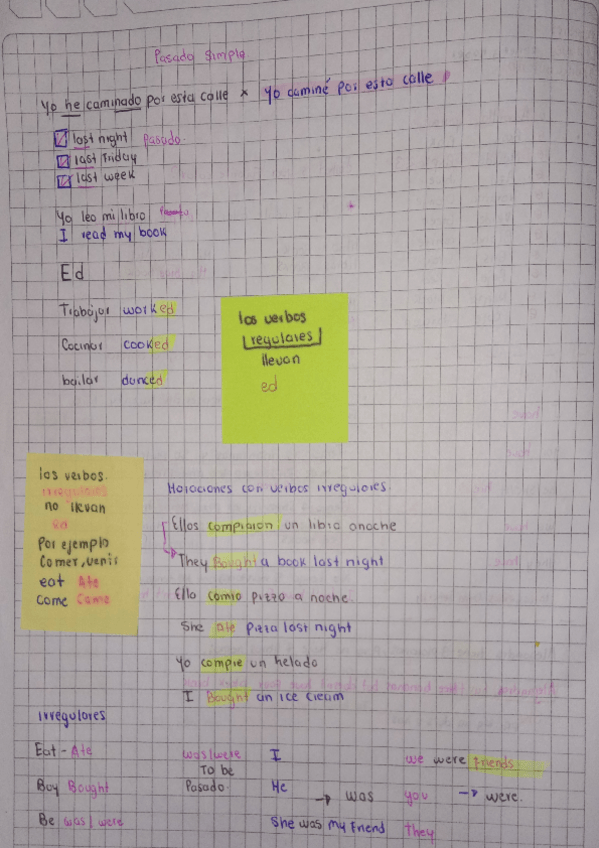 Pasado Simple
Yo he caminado por esta calle × Yo caminé por esta calle
last night Pasado
last Friday
last week
Yo leo mi libro
I read my book
Ed
Trabajar worked
Cocinar cooked
bailar danced
los verbos
regulares
llevan
ed
los verbos
irregulares
no llevan
ed
Por ejemplo
Comer, venir
eat Ate
come Came
Horaciones con verbos irregulares
Ellos compraron un libro anoche
They Bought a book last night
Ella comio pizza a noche
She ate pizza last night
Yo compre un helado
I Bought an ice cream
irregulares
Eat - Ate was/were I we were friends
To be
Buy Bought Pasado He → was you → were.
Be was/were She was my friend They